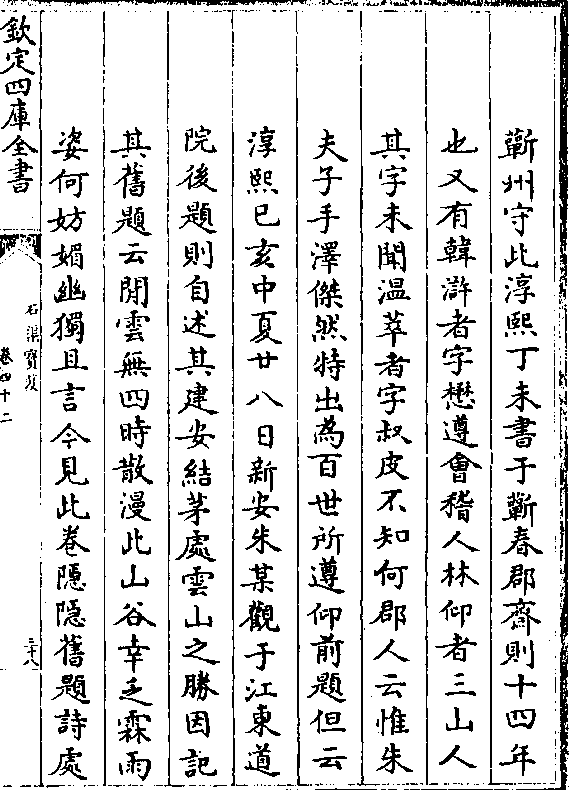 蘄州守此淳熙丁未書于蘄春郡齋則十四年
也又有韓滸者字懋遵會稽人林仰者三山人
其字未聞溫萃者字叔皮不知何郡人云惟朱
夫子手澤傑然特出為百世所遵仰前題但云
淳熙已亥中夏廿八日新安朱某觀于江東道
院後題則自述其建安結茅處雲山之勝因記
其舊題云閒雲無四時散漫此山谷幸乏霖雨
姿何妨媚幽獨且言今見此卷隠隠舊題詩處
欽定四庫全書
石渠寶笈
卷四十二
三十八